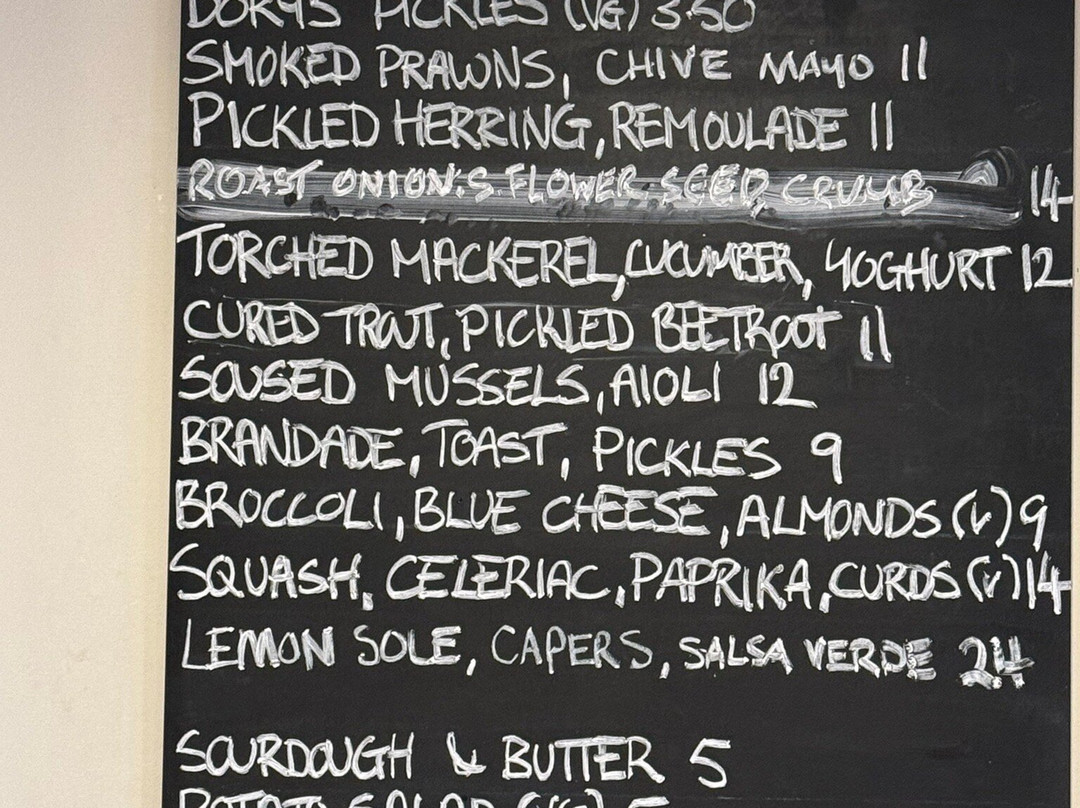 DORYS PICKLES (VG) 3.50
SMOKED PRAWNS, CHIVE MAYO 11
PICKLED HERRING, REMOULADE 11
ROAST ONIONS.FLOWER SEED, CRUMB 14
TORCHED MACKEREL, CUCUMBER, YOGHURT 12
CURED TROUT, PICKLED BEETROOT 11
SOUSED MUSSELS, AIOLI 12
BRANDADE, TOAST, PICKLES 9
BROCCOLI, BLUE CHEESE, ALMONDS (V) 9
SQUASH, CELERIAC, PAPRIKA, CURDS (V) 14
LEMON SOLE, CAPERS, SALSA VERDE 24
SOURDOUGH & BUTTER 5
POTATO SALAD (VG) 5